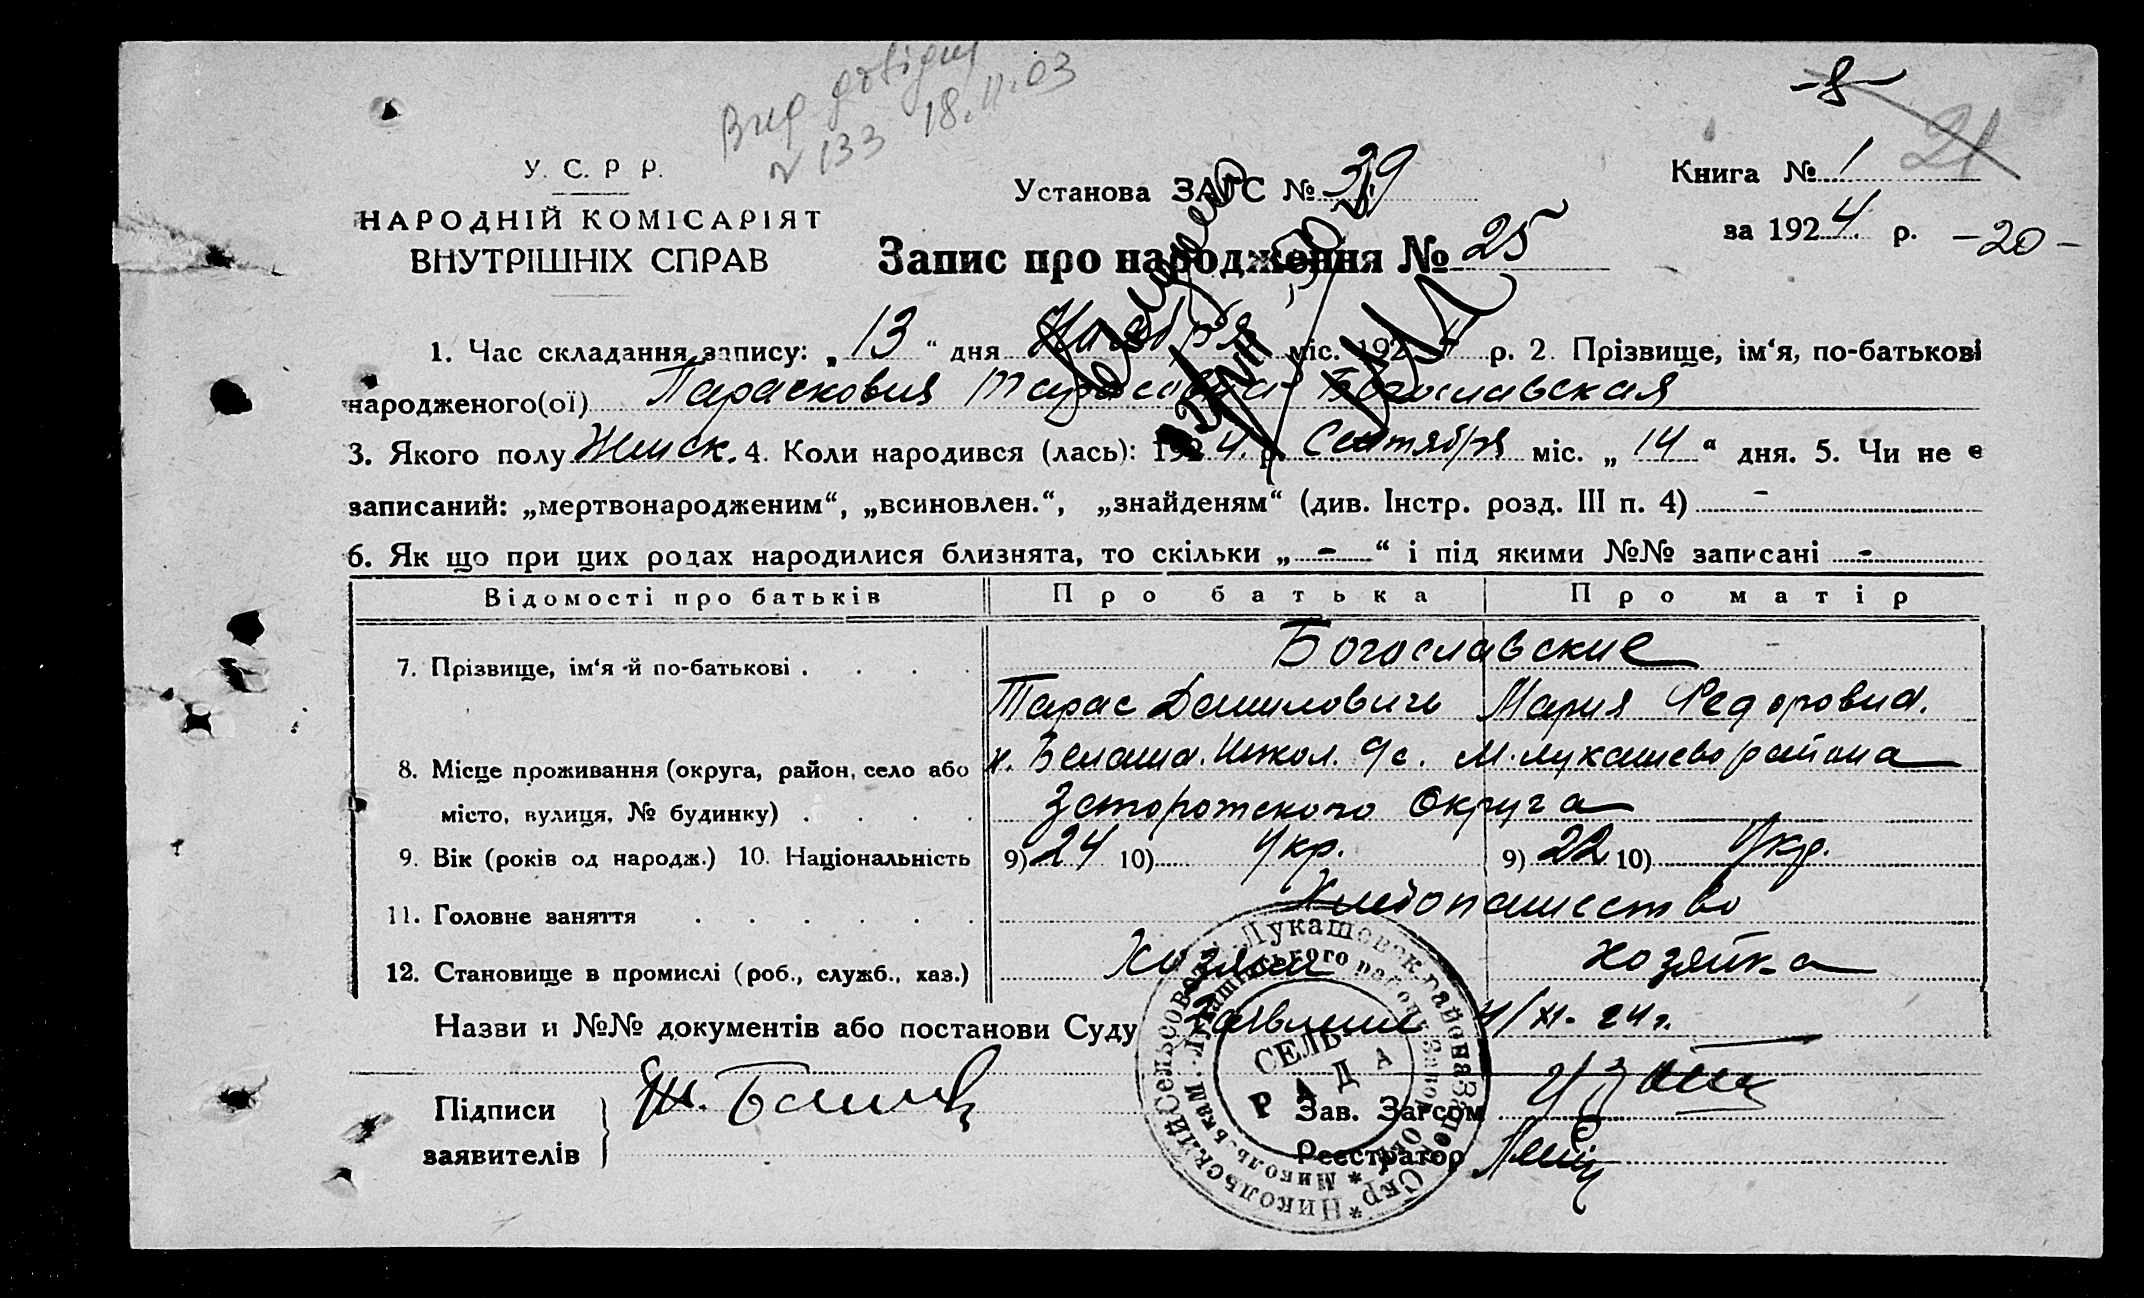 Вид. довідку
N 133 18.11.03
-8-
21
У. С. Р. Р.
НАРОДНІЙ КОМІСАРІЯТ
ВНУТРІШНІХ СПРАВ
Установа ЗАГС № 39
Запис про народження № 25
Книга № 1
за 1924 р. -20-
1. Час складання запису: „13“ дня Ноября міс. 1924 р. 2. Прізвище, ім‘я, по-батькові
народженого(ої) Парасковия Тарасовна Богославская
3. Якого полу Женск. 4. Коли народився (лась): 1924 р. Сентября міс. „14“ дня. 5. Чи не є
записаний: „мертвонародженим“, „всиновлен.“, „знайденям“ (див. Інстр. розд. III п. 4) -
6. Як що при цих родах народилися близнята, то скільки „-“ і під якими №№ записані -
Відомості про батьків Про батька Про матір
7. Прізвище, ім‘я й по-батькові . . . . Богославские
Тарас Данилович Мария Федоровна.
8. Місце проживання (округа, район, село або х. Белаша. Никол. с/с. М. Лукашево района
місто, вулиця, № будинку) . . . . Запорожского Округа
9. Вік (років од народж.) 10. Національність 9) 24 10) Укр. 9) 22 10) Укр.
11. Головне заняття . . . . . . Хлебопашество
12. Становище в промислі (роб., служб., хаз.) Хозяин хозяйка
Назви и №№ документів або постанови Суду Заявление 4/XI-24 г.
Підписи
заявителів
Зав. Загсом
Реєстратор
СЕЛЬ-
РАДА